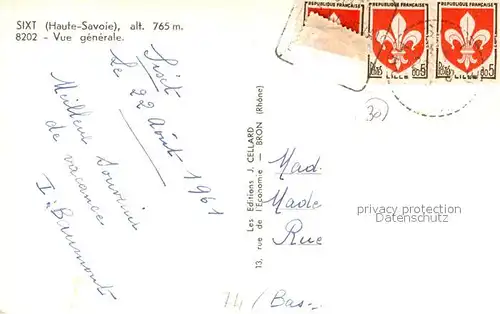 SIXT (Haute-Savoie), alt. 765 m.
8202 - Vue générale.
Sixt
Le 22 Août 1961
Meilleur Souvenir
de vacance
I. Baumont
Les Editions J. CELLARD
13, rue de l'Economie — BRON (Rhône)
REPUBLIQUE FRANÇAISE
REPUBLIQUE FRANÇAISE
REPUBLIQUE FRANÇAISE
Postes LILLE 0,05
Postes LILLE 0,05
30
Mad.
Made
Rue
privacy protection
Datenschutz
74/Bas-